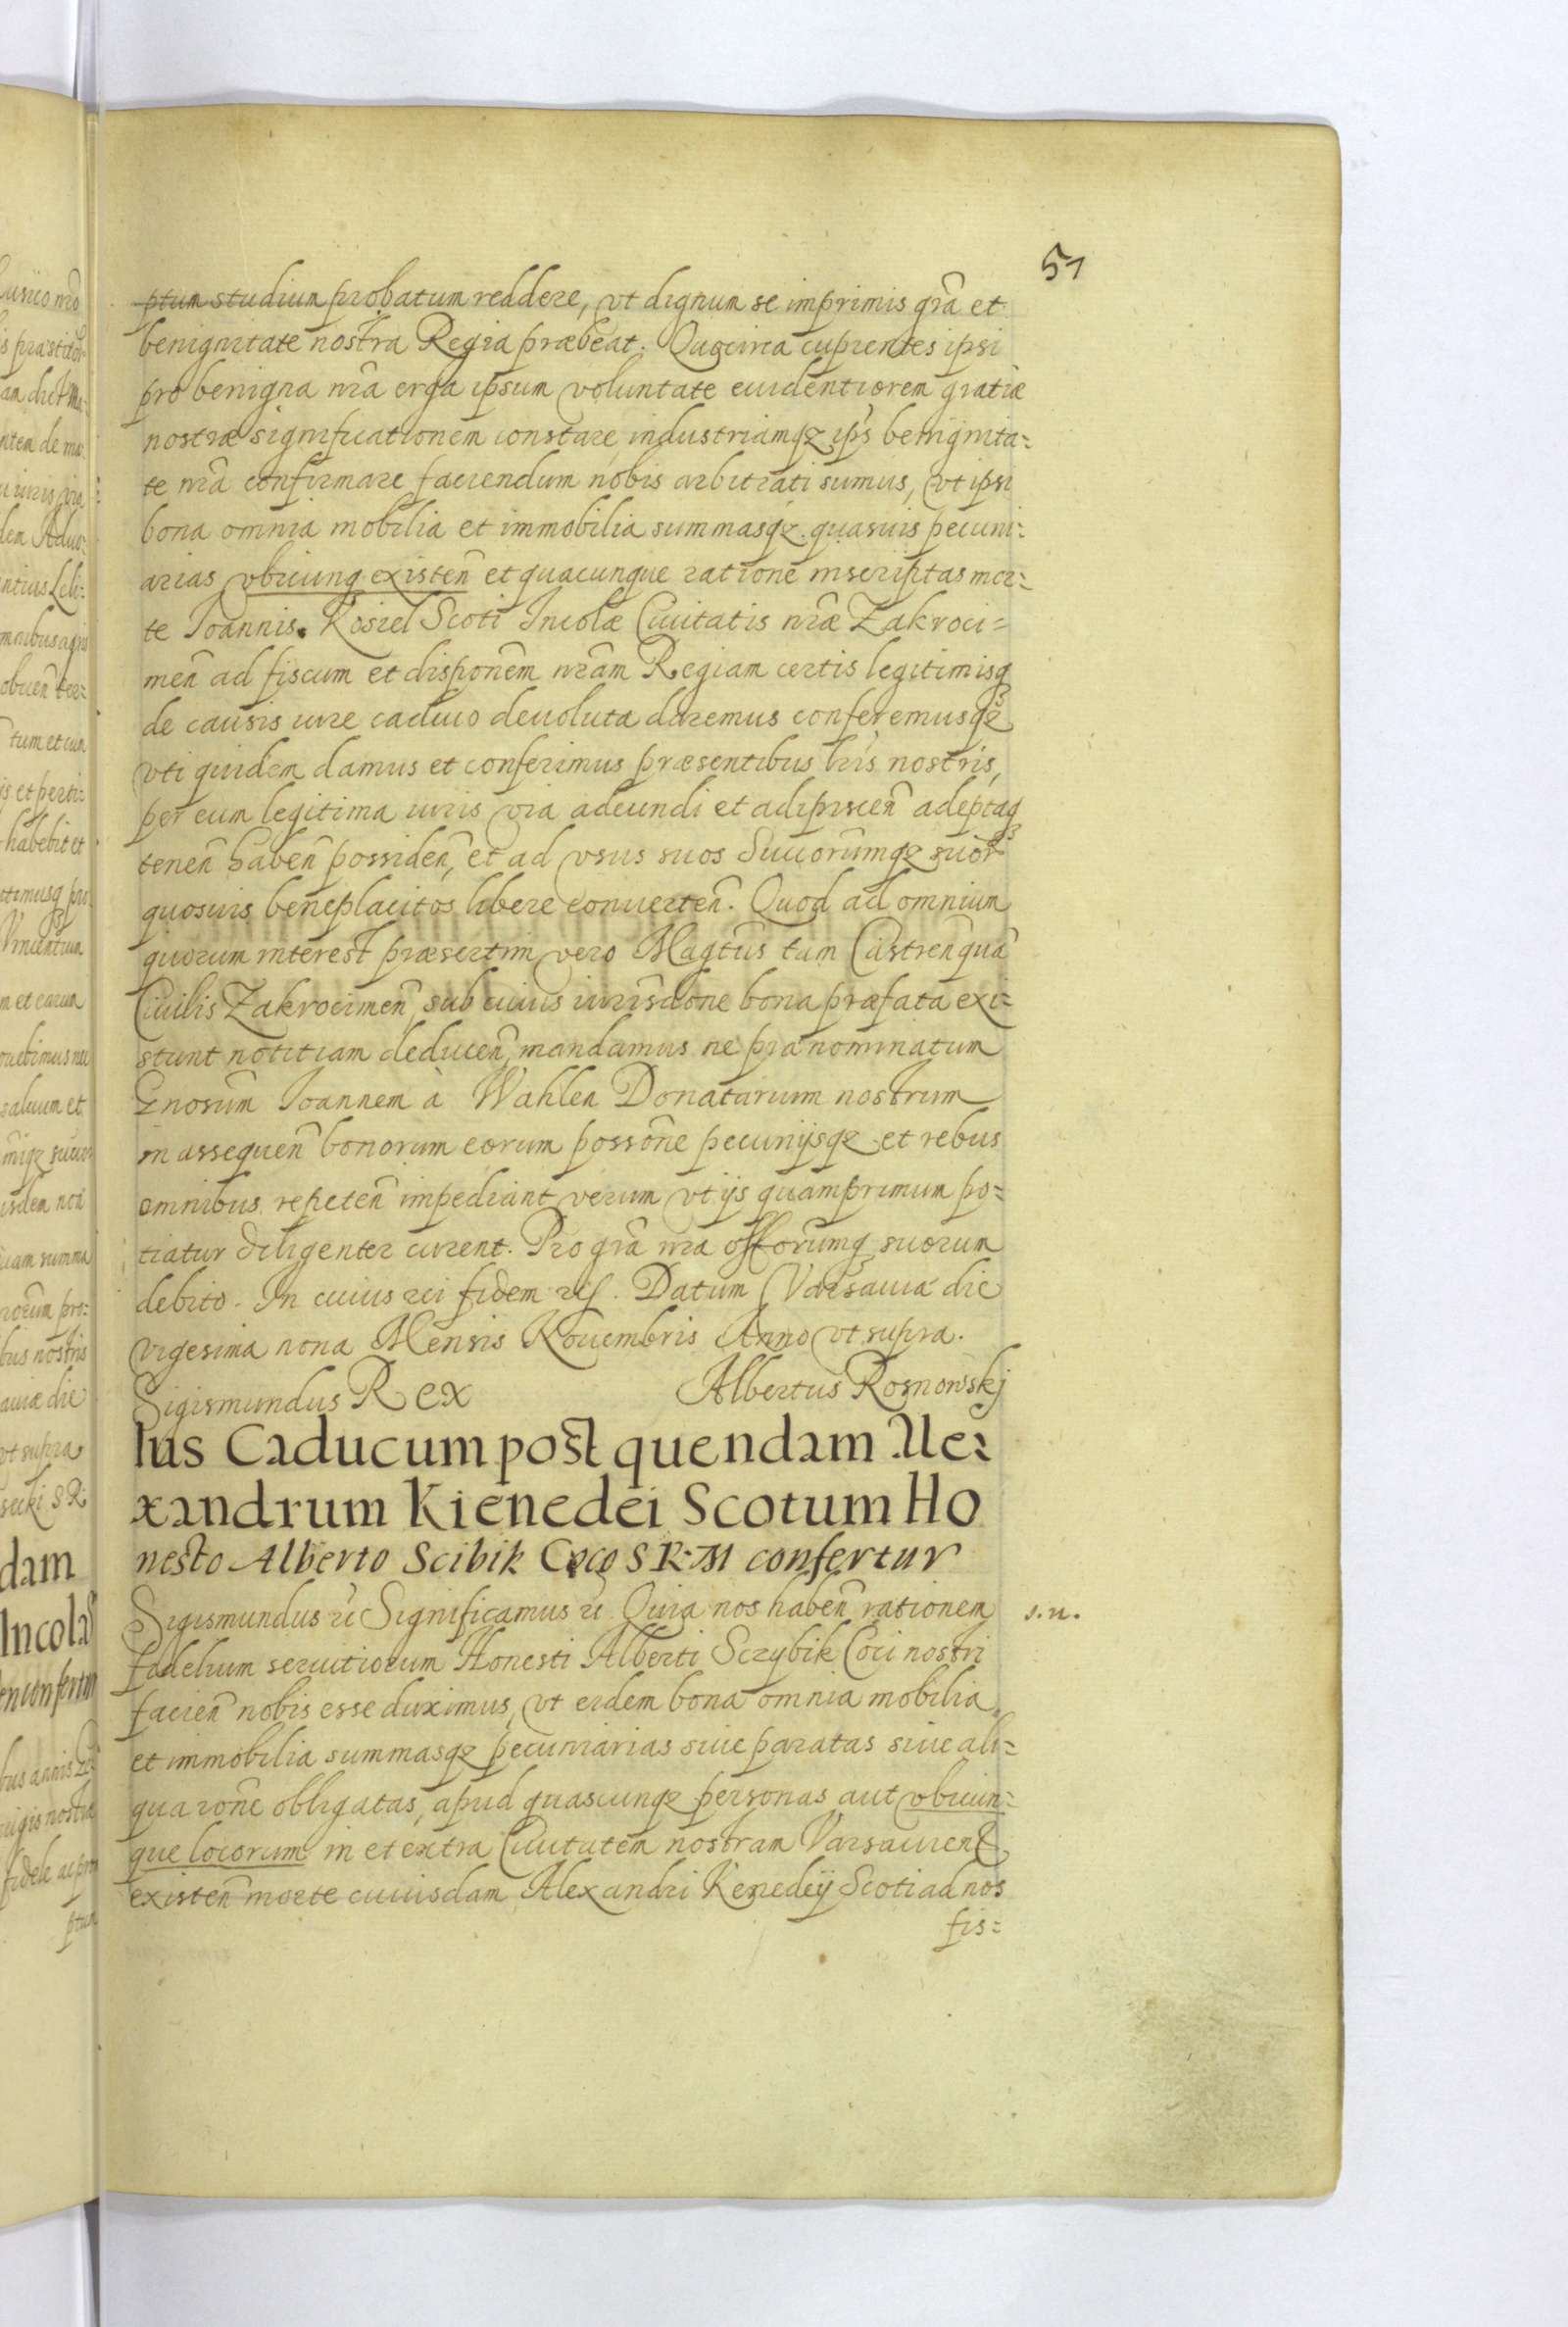 51
ptum studium probatum reddere, vt dignum se imprimis grã et
benignitate nostra Regia præbeat. Quocirca cupientes ipsi
pro benigna nrã erga ipsum voluntate euidentiorem gratiæ
nostræ significationem constare, industriamqz ips benignita=
te nrã confirmare faciendum nobis arbitrati sumus, vt ipsi
bona omnia mobilia et immobilia summasqz quasuis pecuni=
arias vbicunq existeñ et quacunque ratione inscriptas mor=
te Joannis Kosiel Scoti Incolæ Ciuitatis nræ Zakroci=
meñ ad fiscum et dispoñem nrãm Regiam certis legitimisq
de causis iure caduco deuoluta daremus conferemusqz
vti quidem damus et conferimus præsentibus lrĩs nostris,
per eum legitima iuris via adeundi et adipisceñ adeptaq
teneñ habeñ possideñ, et ad vsus suos Succorũmqz suor
quosuis beneplacitos libere conuerteñ. Quod ad omnium
quorum interest præsertim vero Magtũs tam Castreñ quã
Ciuilis Zakrocimeñ, sub cuius iurisdõne bona præfata exi=
stunt notitiam deduceñ, mandamus ne præ nominatum
Gnosũm Joannem à Wahlen Donatarium nostrum
in assequeñ bonorum eorum possõne pecunijsqz et rebus
omnibus repeteñ impediant verum vt ijs quamprimum po=
tiatur diligenter curent. Pro grã nrã offorũmq suorum
debito. In cuius rei fidem rẽ. Datum Varsauiæ die
vigesima nona Mensis Nouembris Anno vt supra.
Sigismundus Rex Albertus Rosnowskj
Ius Caducum post quendam Ale=
xandrum Kienedei Scotum Ho
nesto Alberto Scibik Coco S R M confertur
Sigismundus rẽ Significamus rẽ Quia nos habeñ rationem s.n.
fidelium seruitiorum Honesti Alberti Sczybik Coci nostri
facieñ nobis esse duximus, vt eidem bona omnia mobilia
et immobilia summasqz pecuniarias siue paratas siue ali=
qua roñe obligatas, apud quascunqz personas aut vbicun=
que locorum in et extra Ciuitatem nostram Varsauieñ
existeñ morte cuiusdam Alexandri Kenedeÿ Scoti ad nos
fis=